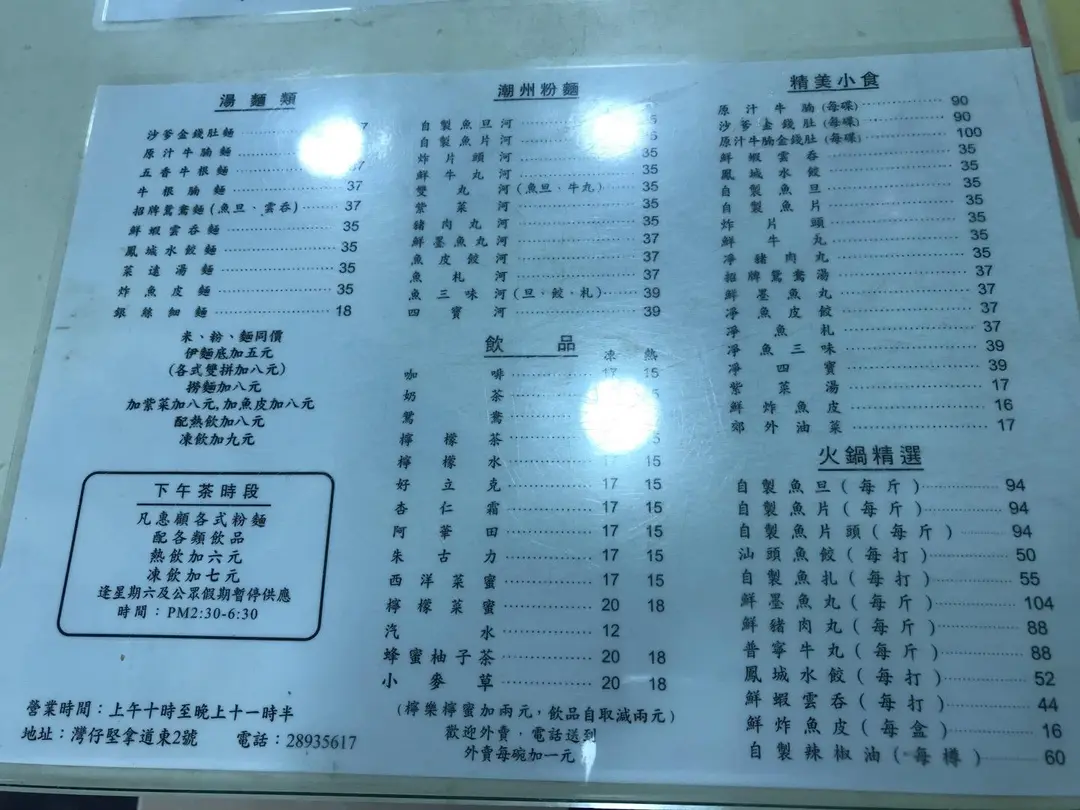 湯麵類
沙爹金錢肚麵 7
原汁牛腩麵
五香牛根麵 37
牛根腩麵 37
招牌鴛鴦麵(魚旦、雲吞) 37
鮮蝦雲吞麵 35
鳳城水餃麵 35
菜遠湯麵 35
炸魚皮麵 35
銀絲細麵 18
米、粉、麵同價
伊麵底加五元
(各式雙拼加八元)
撈麵加八元
加紫菜加八元,加魚皮加八元
配熱飲加八元
凍飲加九元
下午茶時段
凡惠顧各式粉麵
配各類飲品
熱飲加六元
凍飲加七元
逢星期六及公眾假期暫停供應
時間：PM2:30-6:30
營業時間：上午十時至晚上十一時半
地址：灣仔堅拿道東2號 電話：28935617
潮州粉麵
自製魚旦河 5
自製魚片河 5
炸片頭河 35
鮮牛丸河 35
雙丸河(魚旦、牛丸) 35
紫菜河 35
豬肉丸河 35
鮮墨魚丸河 37
魚皮餃河 37
魚札河 37
魚三味河(旦、餃、札) 39
四寶河 39
飲品 凍 熱
咖啡 17 15
奶茶
鴛鴦
檸檬茶 5
檸檬水 17 15
好立克 17 15
杏仁霜 17 15
阿華田 17 15
朱古力 17 15
西洋菜蜜 17 15
檸檬菜蜜 20 18
汽水 12
蜂蜜柚子茶 20 18
小麥草 20 18
(檸樂檸蜜加兩元，飲品自取減兩元)
歡迎外賣，電話送到
外賣每碗加一元
精美小食
原汁牛腩(每碟) 90
沙爹金錢肚(每碟) 90
原汁牛腩金錢肚(每碟) 100
鮮蝦雲吞 35
鳳城水餃 35
自製魚旦 35
自製魚片 35
炸片頭 35
鮮牛丸 35
淨豬肉丸 35
招牌鴛鴦湯 37
鮮墨魚丸 37
淨魚皮餃 37
淨魚札 37
淨魚三味 39
淨四寶 39
紫菜湯 17
鮮炸魚皮 16
郊外油菜 17
火鍋精選
自製魚旦(每斤) 94
自製魚片(每斤) 94
自製魚片頭(每斤) 94
汕頭魚餃(每打) 50
自製魚扎(每打) 55
鮮墨魚丸(每斤) 104
鮮豬肉丸(每斤) 88
普寧牛丸(每斤) 88
鳳城水餃(每打) 52
鮮蝦雲吞(每打) 44
鮮炸魚皮(每盒) 16
自製辣椒油(每樽) 60